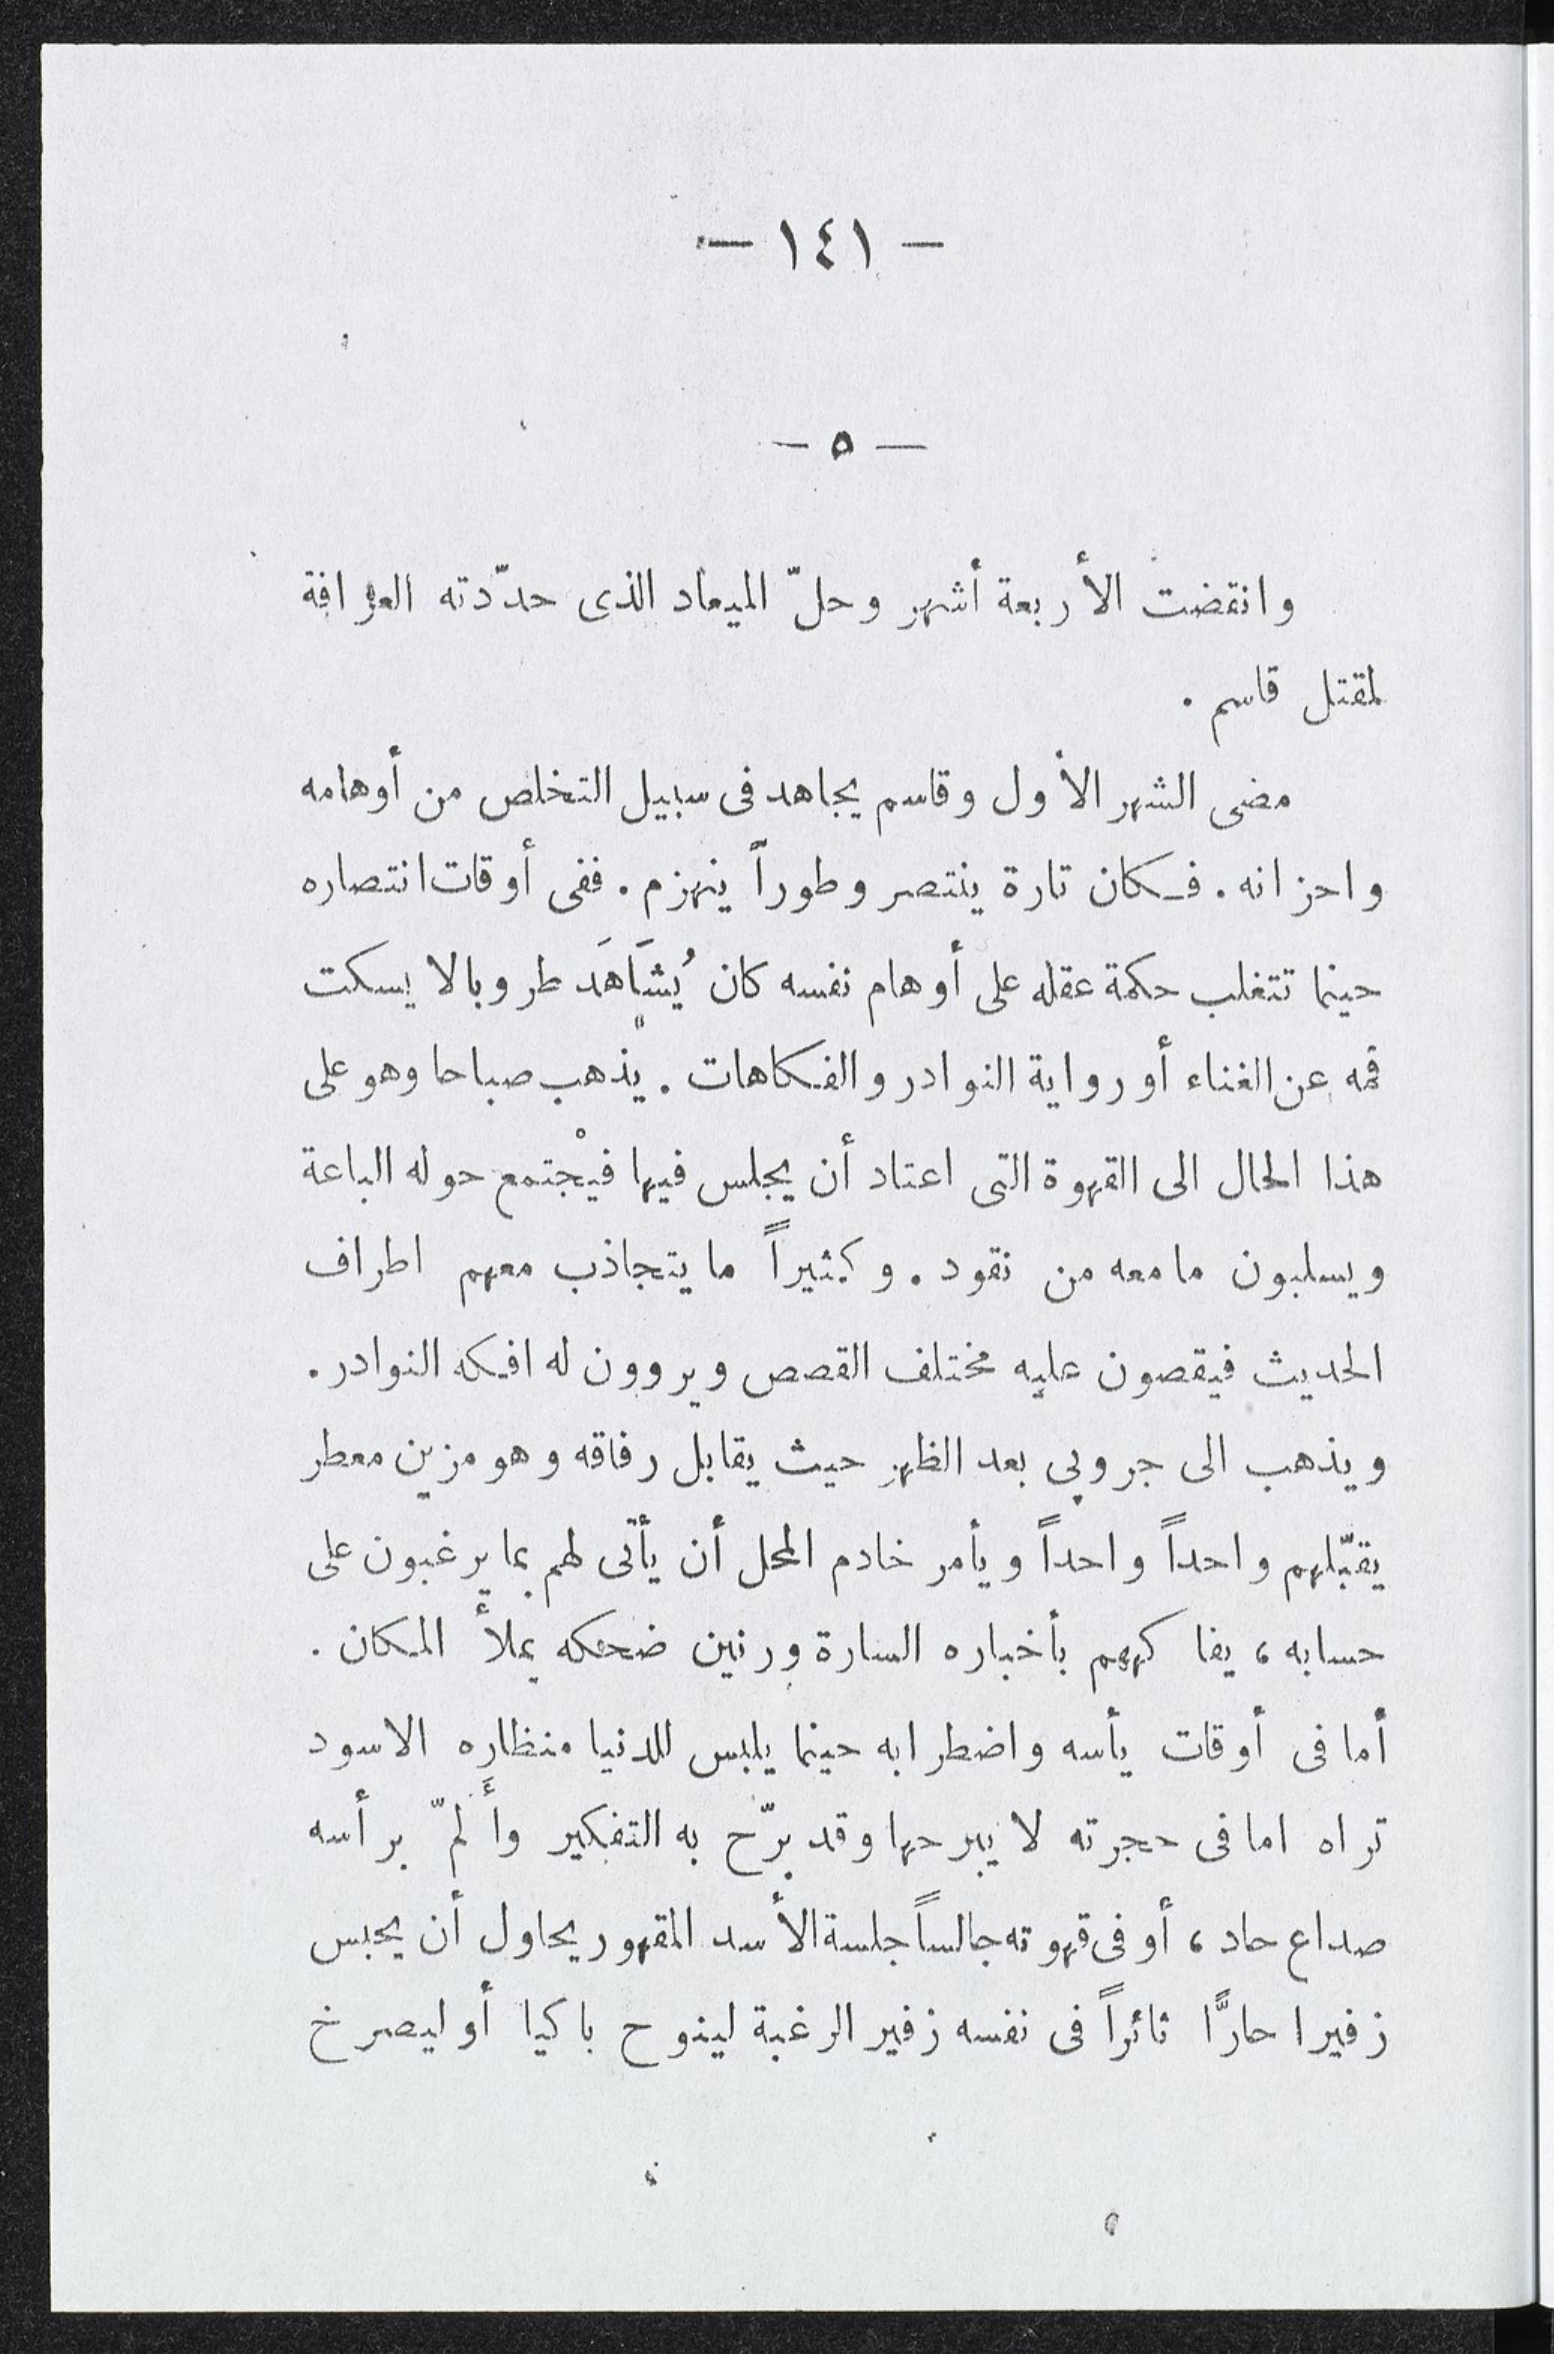 — ١٤١ —
— ٥ —
وانقضت الأربعة أشهر وحلّ الميعاد الذى حدّدته العرافة
لمقتل قاسم .
مضى الشهر الأول وقاسم يجاهد فى سبيل التخلص من أوهامه
واحزانه . فكان تارة ينتصر وطوراً ينهزم . ففى أوقات انتصاره
حينما تتغلب حكمة عقله على أوهام نفسه كان يُشَاهَد طروبا لا يسكت
فمه عن الغناء أو رواية النوادر والفكاهات . يذهب صباحا وهو على
هذا الحال الى القهوة التى اعتاد أن يجلس فيها فيْجتمع حوله الباعة
ويسلبون ما معه من نقود . وكثيراً ما يتجاذب معهم اطراف
الحديث فيقصون عليه مختلف القصص ويروون له افكه النوادر .
ويذهب الى جروبى بعد الظهر حيث يقابل رفاقه وهو مزين معطر
يقبّلهم واحداً واحداً ويأمر خادم المحل أن يأتى لهم بما يرغبون على
حسابه ، يفاكههم بأخباره السارة ورنين ضحكه يملأ المكان .
أما فى أوقات يأسه واضطرابه حينما يلبس للدنيا منظاره الاسود
تراه اما فى حجرته لا يبرحها وقد برّح به التفكير وأَلمّ برأسه
صداع حاد ، أو فى قهوته جالساً جلسة الأسد المقهور يحاول أن يحبس
زفيرا حارًّا ثائراً فى نفسه زفير الرغبة لينوح باكيا أو ليصرخ